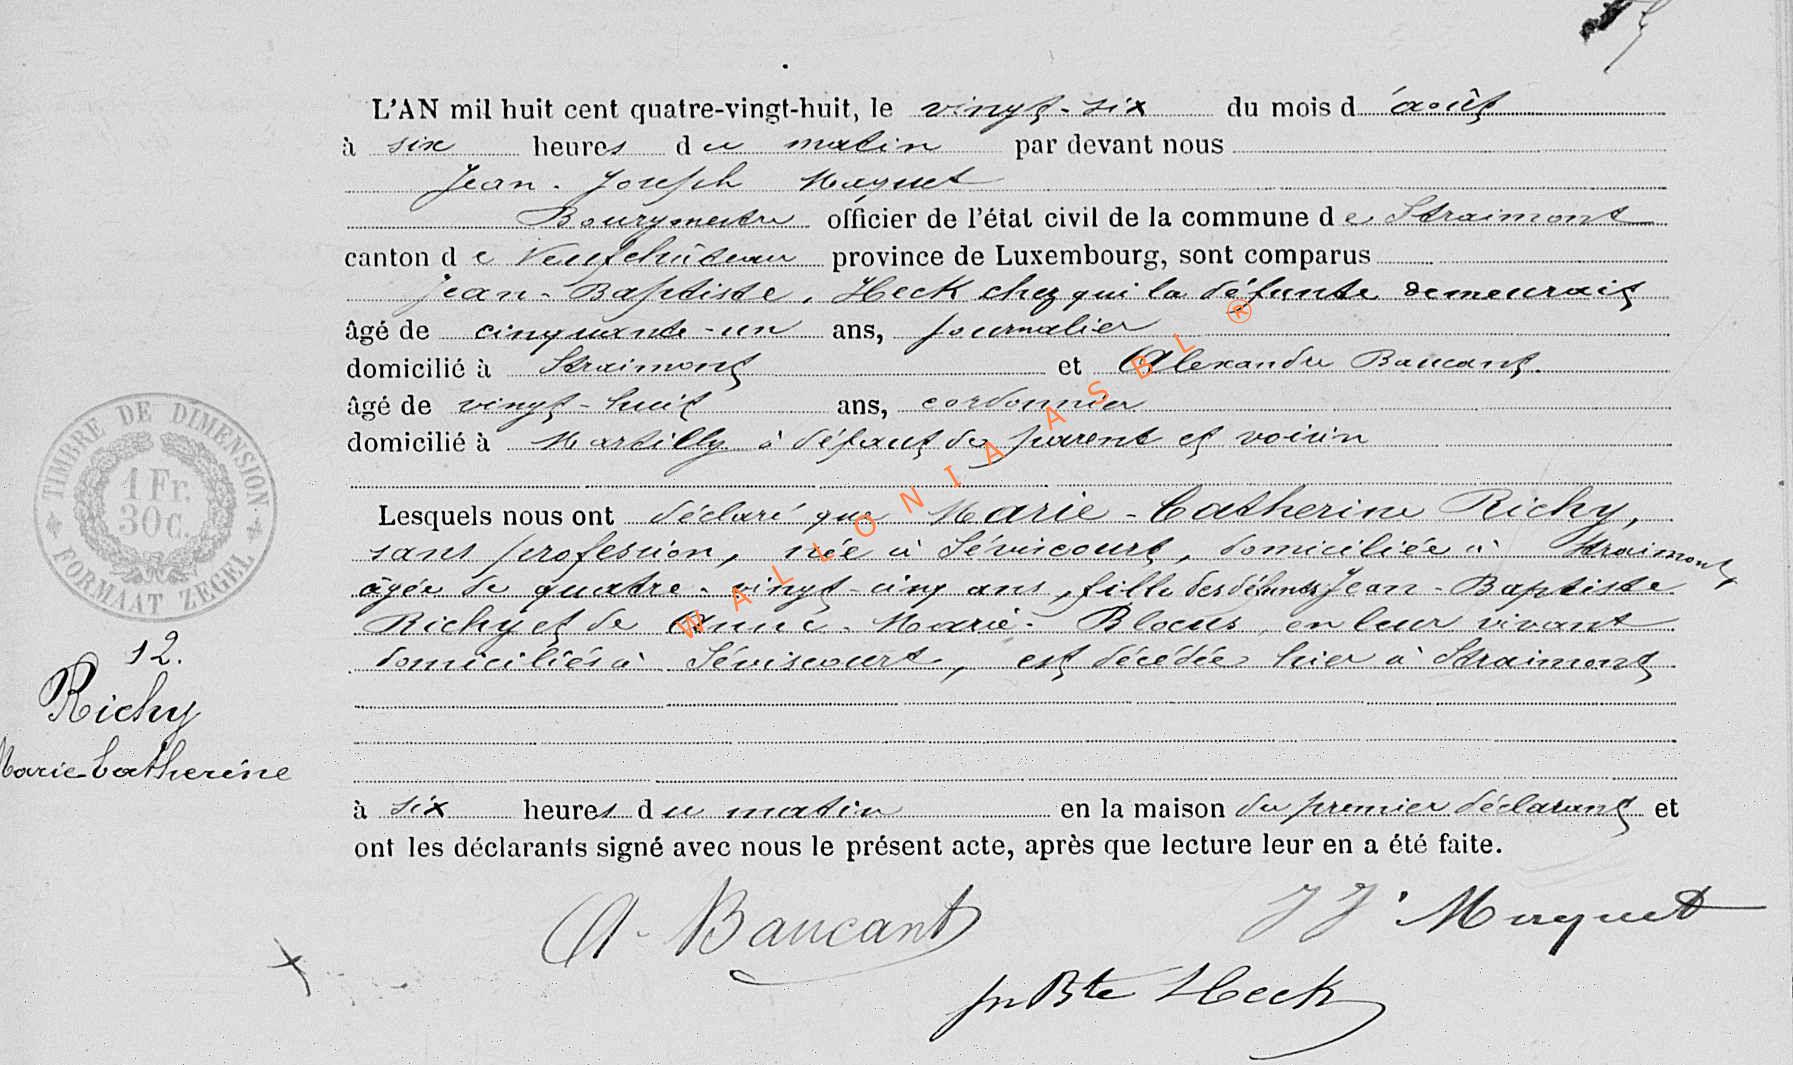 L'AN mil huit cent quatre-vingt-huit, le vingt-six du mois d'août
à six heures du matin par devant nous
Jean-Joseph Maquet
Bourgmestre officier de l'état civil de la commune de Straimont
canton de Neufchâteau province de Luxembourg, sont comparus
Jean-Baptiste, Heck chez qui la défunte demeurait
âgé de cinquante-un ans, journalier
domicilié à Straimont et Alexandre Baucant.
âgé de vingt-huit ans, cordonnier
domicilié à Martilly à défaut de parent et voisin
Lesquels nous ont déclaré que Marie-Catherine Richy,
sans profession, née à Séviscourt, domiciliée à Straimont
âgée de quatre-vingt-cinq ans, fille des défunts Jean-Baptiste
Richy et de Anne-Marie-Blocus, en leur vivant
domiciliés à Séviscourt, est décédée hier à Straimont
à six heures du matin en la maison du premier déclarant et
ont les déclarants signé avec nous le présent acte, après que lecture leur en a été faite.
A. Baucant
J J. Maquet
Jn Bte Heck
TIMBRE DE DIMENSION
1 Fr.
30 C.
FORMAAT ZEGEL
12.
Richy
Marie-Catherine
WALLONIA ASBL ®